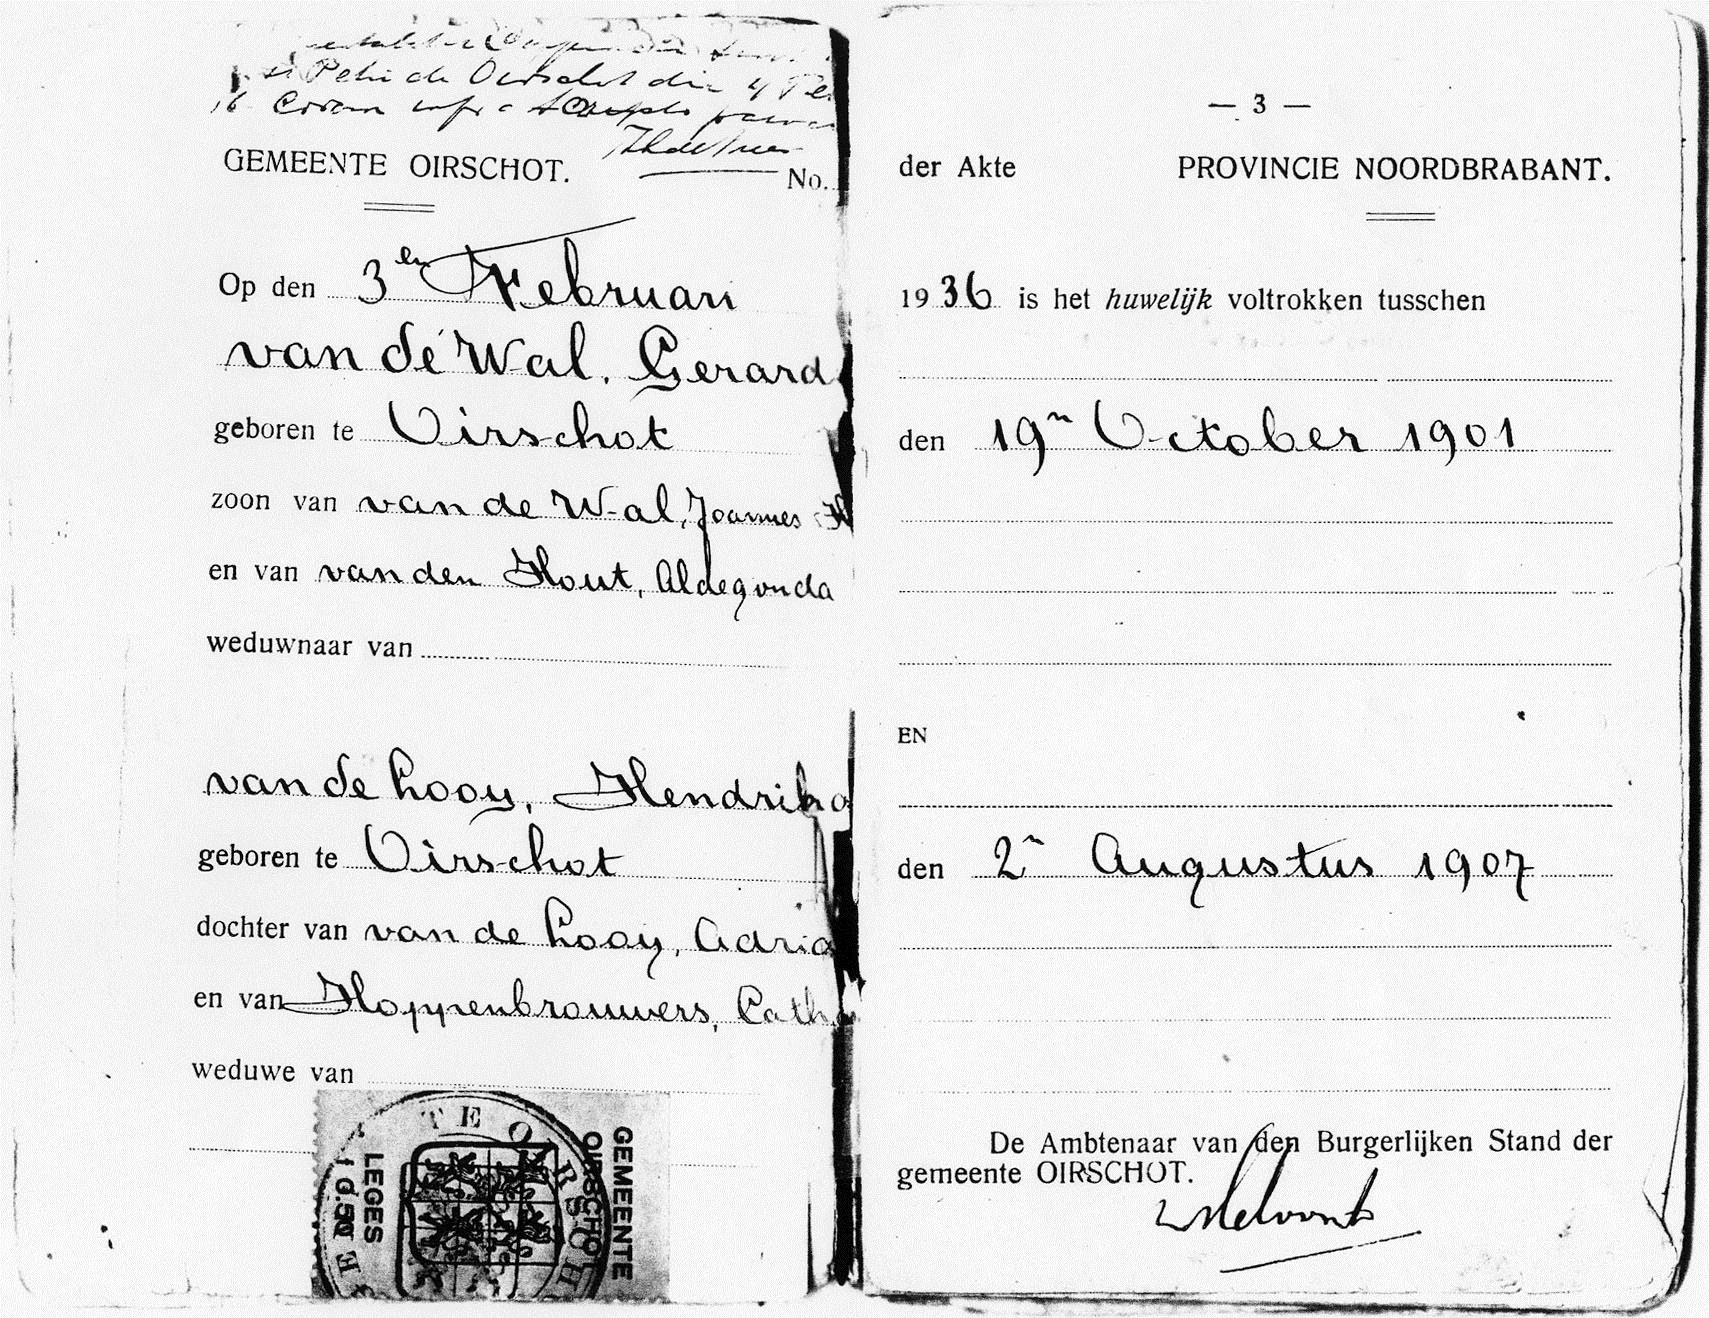 Petri de Oirschot die 4 Fe
16 Coram infra scripto
GEMEENTE OIRSCHOT.
No.
Op den 3en Februari
van de Wal, Gerard
geboren te Oirschot
zoon van van de Wal, Joannes H
en van van den Hout, Aldegonda
weduwnaar van
van de Looy, Hendrika
geboren te Oirschot
dochter van van de Looy, Adria
en van Hoppenbrouwers, Catha
weduwe van
GEMEENTE
OIRSCHOT
LEGES
f 0.50
TE OIRSCHO
— 3 —
der Akte PROVINCIE NOORDBRABANT.
1936 is het huwelijk voltrokken tusschen
den 19n October 1901
EN
den 2n Augustus 1907
De Ambtenaar van den Burgerlijken Stand der
gemeente OIRSCHOT.